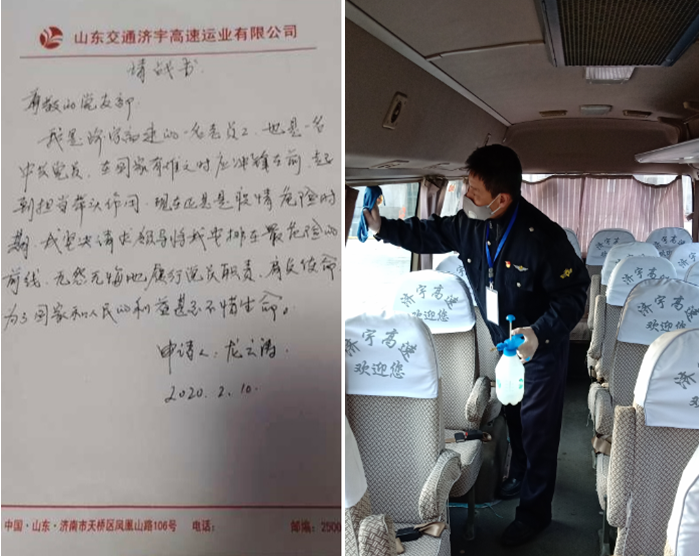 山东交通济宇高速运业有限公司
请战书
尊敬的党支部
我是济宇高速的一名老员工，也是一名
中共党员，在国家有难之时应冲锋在前，起
到担当带头作用，现在正是是疫情危险时
期，我坚决请求领导将我安排在最危险的
前线，无怨无悔地履行党员职责，肩负使命
为了国家和人民的利益甚至不惜生命。
申请人：龙云涛
2020.2.10.
中国·山东·济南市天桥区凤凰山路106号 电话： 邮编：2500
济宇高速
欢迎您
济宇高速
欢迎您
济宇高速
欢迎您
济宇高速
欢迎您